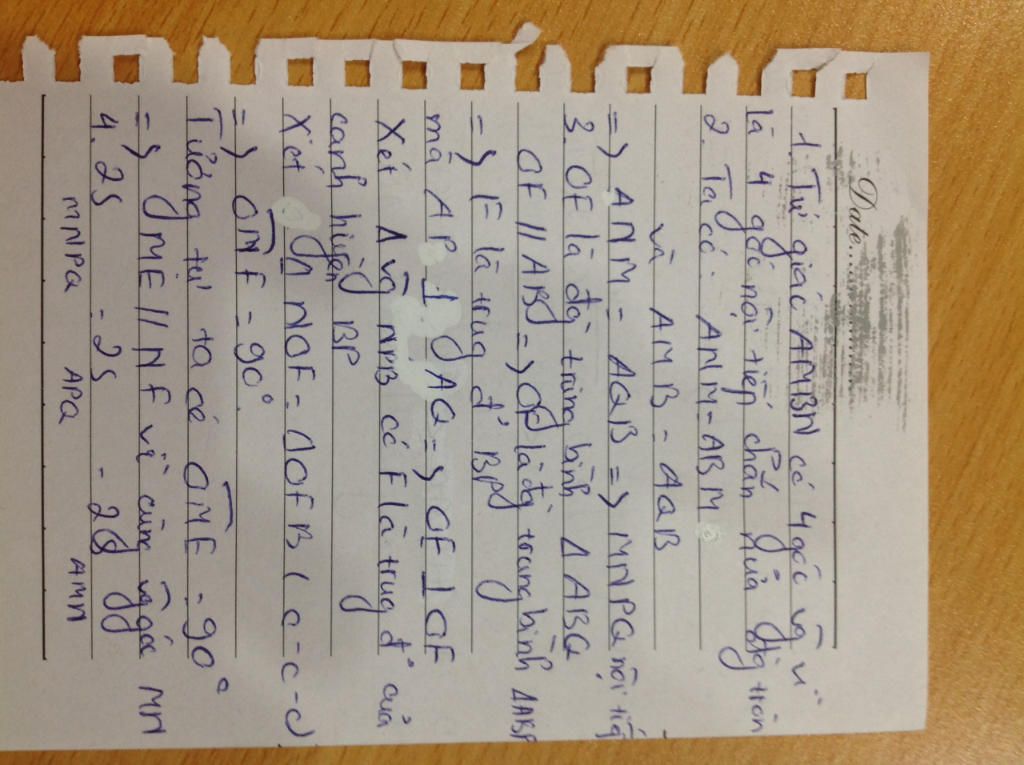 Date...
1. Tứ giác AMBN có 4 góc vg vì
là 4 góc nội tiếp chắn nửa đg tròn
2. Ta có: ANM = ABM
và AMB = AQB
=> ANM = AQB => MNPQ nội tiếp
3. OE là đg trung bình Δ ABQ
OF // AP => OF là đg trung bình ΔABP
=> F là trug đ' BP
mà AP ⊥ AQ => OE ⊥ OF
Xét Δ vg NPB có F là trug đ' của
cạnh huyền BP
Xét NOF = ΔOFB (c-c-c)
=> ONF = 90°
Tương tự ta có OME = 90°
=> ME // NF vì cùng vg góc MN
4. 2S MNPQ = 2S APQ - 2S AMN